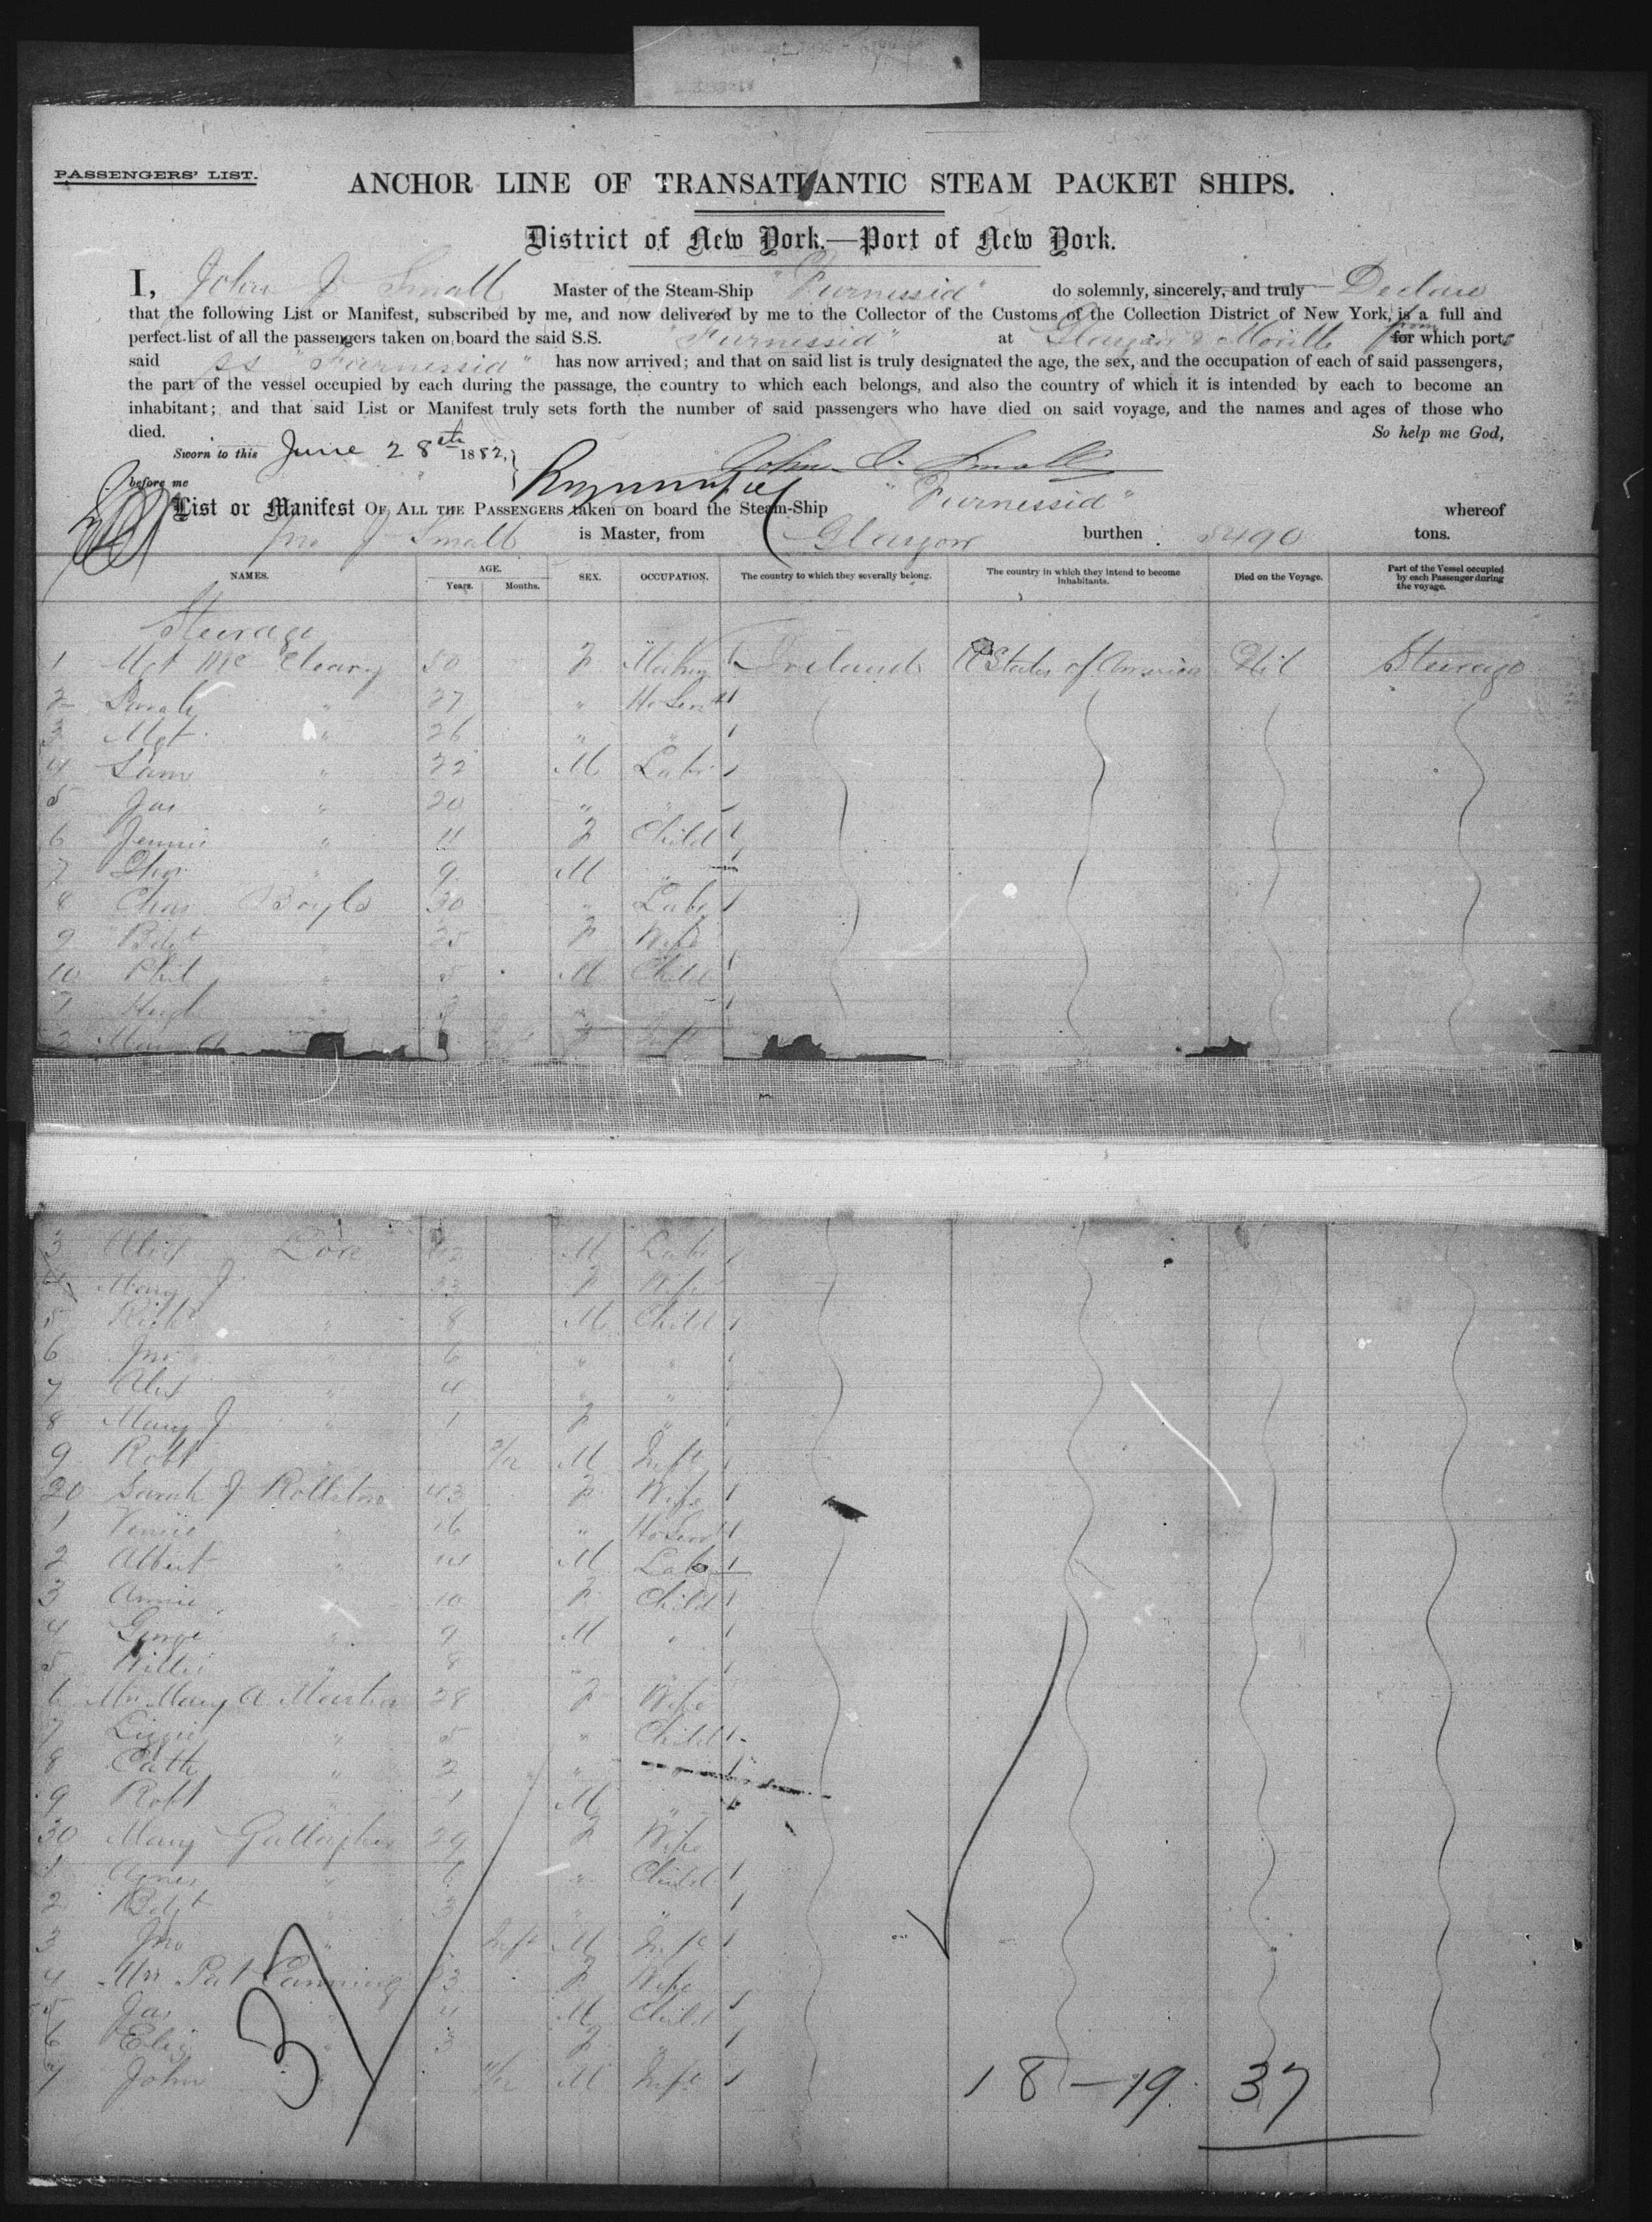 PASSENGERS' LIST.
ANCHOR LINE OF TRANSATLANTIC STEAM PACKET SHIPS.
District of New York.—Port of New York.
I, John J Small Master of the Steam-Ship "Furnessia" do solemnly, sincerely, and truly Declare
that the following List or Manifest, subscribed by me, and now delivered by me to the Collector of the Customs of the Collection District of New York, is a full and
perfect list of all the passengers taken on board the said S.S. "Furnessia" at Glasgow & Moville from for which ports
said SS "Furnessia" has now arrived; and that on said list is truly designated the age, the sex, and the occupation of each of said passengers,
the part of the vessel occupied by each during the passage, the country to which each belongs, and also the country of which it is intended by each to become an
inhabitant; and that said List or Manifest truly sets forth the number of said passengers who have died on said voyage, and the names and ages of those who
died. So help me God,
Sworn to this June 28th 1882, John J. Small
before me
List or Manifest OF ALL THE PASSENGERS taken on board the Steam-Ship "Furnessia" whereof
Jno J Small is Master, from Glasgow burthen 5490 tons.
NAMES. AGE. Years. Months. SEX. OCCUPATION. The country to which they severally belong. The country in which they intend to become inhabitants. Died on the Voyage. Part of the Vessel occupied by each Passenger during the voyage.
Steerage
1 Mgt Mc Cleary 50 F Ireland U States of America Nil Steerage
2 " 27 " Ho Servt
3 Mgt " 26 " "
4 Sam " 22 M Labr
5 Jas " 20 " "
6 Jennie " 11 F Child
7 " 9 M "
8 Chas Boyle 30 " Labr
9 Bdgt " 25 F Wife
10 Phil " 5 M Child
1 Hugh " 3 "
2 Mary A F Inft
3 Alex M Labr
4 Mary J " 33 F Wife
5 Richd " 8 M Child
6 Jno " 6 " "
7 Alex " 4 " "
8 Mary J " 1 F "
9 Robt M Inft
20 Sarah J Rollston 43 F Wife
1 " 16 " Ho Servt
2 Albert " 14 M Labr
3 Annie " 10 F Child
4 George " 9 M "
5 Willie " 8 " "
6 Mrs Mary A Martin 28 F Wife
7 Lizzie " 5 " Child
8 Cath " 2 "
9 Robt " 1 M "
30 Mary Gallagher 29 F Wife
1 Agnes " 6 " Child
2 Bdgt " 3 " "
3 Jno " Inft M Inft
4 Mrs Pat Canning 23 F Wife
5 Jas " 4 M Child
6 Eliz " 3 F "
7 John " M Inft
37
18 - 19 37